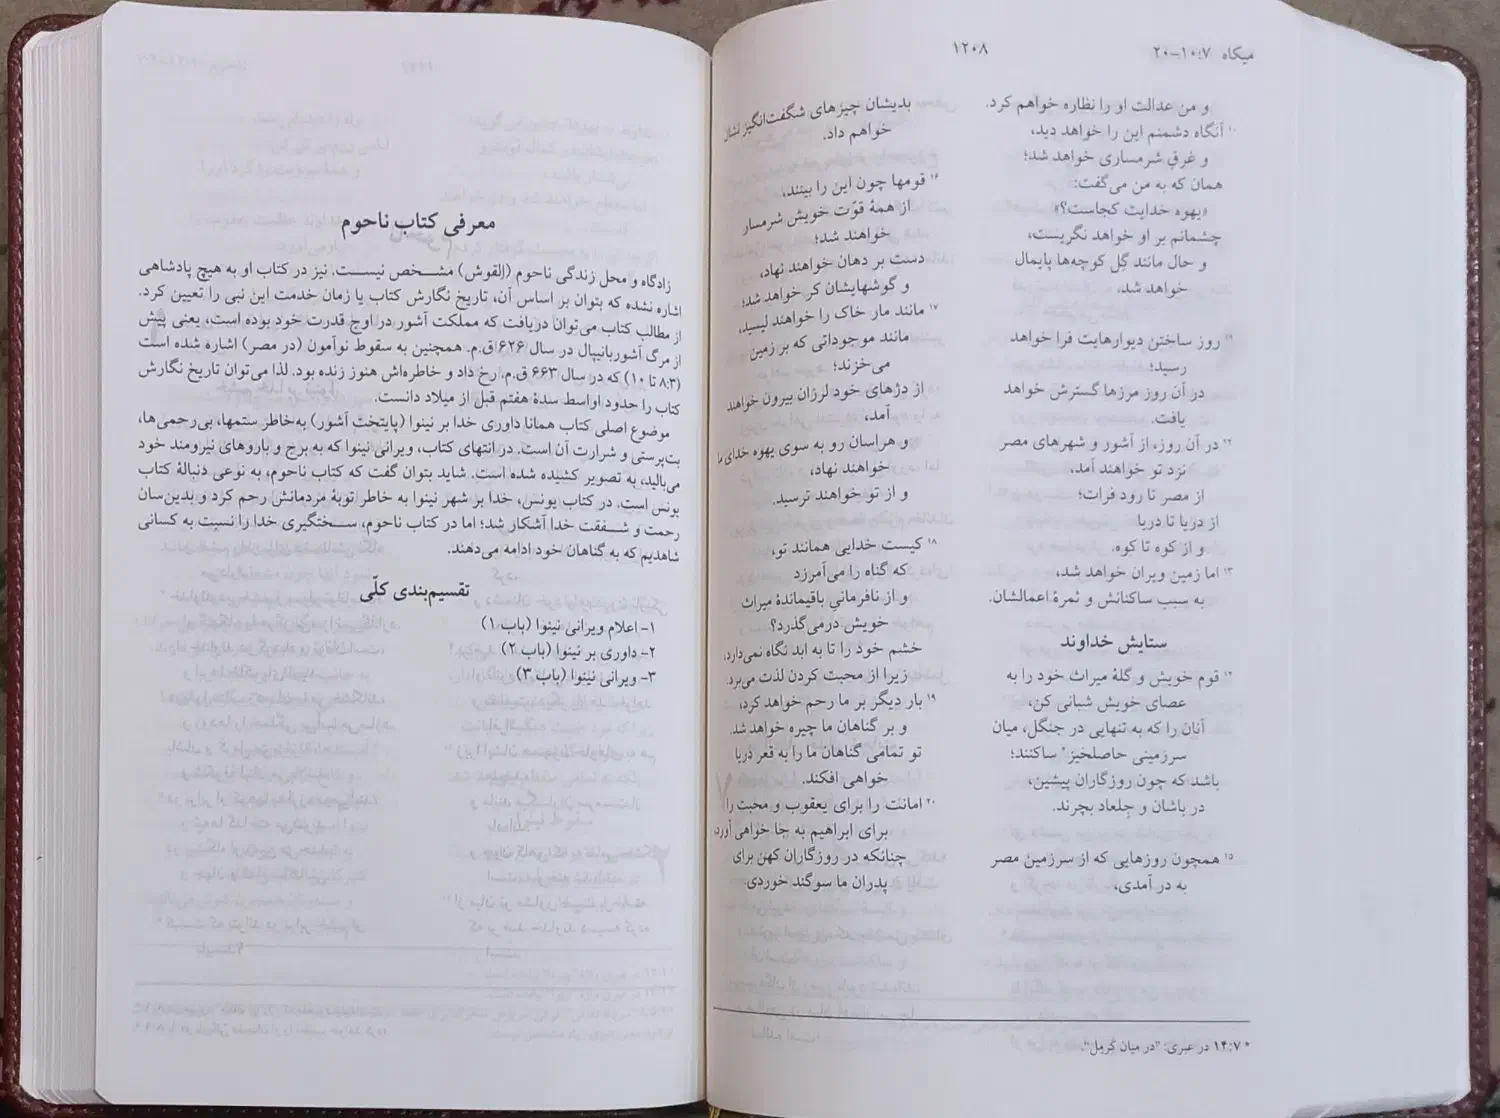 میکاه ۷:‏۱۰-۲۰
۱۲۰۸
و من عدالت او را نظاره خواهم کرد.
۱۰ آنگاه دشمنم این را خواهد دید،
و غرقِ شرمساری خواهد شد؛
همان که به من می‌گفت:
«یهوه خدایت کجاست؟»
چشمانم بر او خواهد نگریست،
و حال مانند گِل کوچه‌ها پایمال
خواهد شد.
۱۱ روز ساختن دیوارهایت فرا خواهد
رسید؛
در آن روز مرزها گسترش خواهد
یافت.
۱۲ در آن روز، از آشور و شهرهای مصر
نزد تو خواهند آمد،
از مصر تا رود فرات؛
از دریا تا دریا
و از کوه تا کوه.
۱۳ اما زمین ویران خواهد شد،
به سبب ساکنانش و ثمرۀ اعمالشان.
ستایش خداوند
۱۴ قوم خویش و گلۀ میراث خود را به
عصای خویش شبانی کن،
آنان را که به تنهایی در جنگل، میان
سرزمینی حاصلخیز* ساکنند؛
باشد که چون روزگاران پیشین،
در باشان و جِلعاد بچرند.
۱۵ همچون روزهایی که از سرزمین مصر
به در آمدی،
بدیشان چیزهای شگفت‌انگیز نشان
خواهم داد.
۱۶ قومها چون این را بینند،
از همۀ قوّت خویش شرمسار
خواهند شد؛
دست بر دهان خواهند نهاد،
و گوشهایشان کر خواهد شد؛
۱۷ مانند مار خاک را خواهند لیسید،
مانند موجوداتی که بر زمین
می‌خزند؛
از دژهای خود لرزان بیرون خواهند
آمد،
و هراسان رو به سوی یهوه خدای ما
خواهند نهاد،
و از تو خواهند ترسید.
۱۸ کیست خدایی همانند تو،
که گناه را می‌آمرزد
و از نافرمانیِ باقیماندۀ میراث
خویش درمی‌گذرد؟
خشم خود را تا به ابد نگاه نمی‌دارد،
زیرا از محبت کردن لذت می‌برد.
۱۹ بار دیگر بر ما رحم خواهد کرد،
و بر گناهان ما چیره خواهد شد.
تو تمامی گناهان ما را به قعر دریا
خواهی افکند.
۲۰ امانت را برای یعقوب و محبت را
برای ابراهیم به جا خواهی آورد،
چنانکه در روزگاران کهن برای
پدران ما سوگند خوردی.
* ۷:‏۱۴ در عبری: "در میان کَرمِل".
معرفی کتاب ناحوم
زادگاه و محل زندگی ناحوم (اِلقوش) مشخص نیست. نیز در کتاب او به هیچ پادشاهی
اشاره نشده که بتوان بر اساس آن، تاریخ نگارش کتاب یا زمان خدمت این نبی را تعیین کرد.
از مطالب کتاب می‌توان دریافت که مملکت آشور در اوج قدرت خود بوده است، یعنی پیش
از مرگ آشوربانیپال در سال ۶۲۶ ق.م. همچنین به سقوط نوآمون (در مصر) اشاره شده است
(۳:‏۸ تا ۱۰) که در سال ۶۶۳ ق.م. رخ داد و خاطره‌اش هنوز زنده بود. لذا می‌توان تاریخ نگارش
کتاب را حدود اواسط سدۀ هفتم قبل از میلاد دانست.
موضوع اصلی کتاب همانا داوری خدا بر نینوا (پایتخت آشور) به‌خاطر ستمها، بی‌رحمی‌ها،
بت‌پرستی و شرارت آن است. در انتهای کتاب، ویرانی نینوا که به برج و باروهای نیرومند خود
می‌بالید، به تصویر کشیده شده است. شاید بتوان گفت که کتاب ناحوم، به نوعی دنبالۀ کتاب
یونس است. در کتاب یونس، خدا بر شهر نینوا به خاطر توبۀ مردمانش رحم کرد و بدین‌سان
رحمت و شفقت خدا آشکار شد؛ اما در کتاب ناحوم، سختگیری خدا را نسبت به کسانی
شاهدیم که به گناهان خود ادامه می‌دهند.
تقسیم‌بندی کلّی
۱- اعلام ویرانی نینوا (باب ۱)
۲- داوری بر نینوا (باب ۲)
۳- ویرانی نینوا (باب ۳)